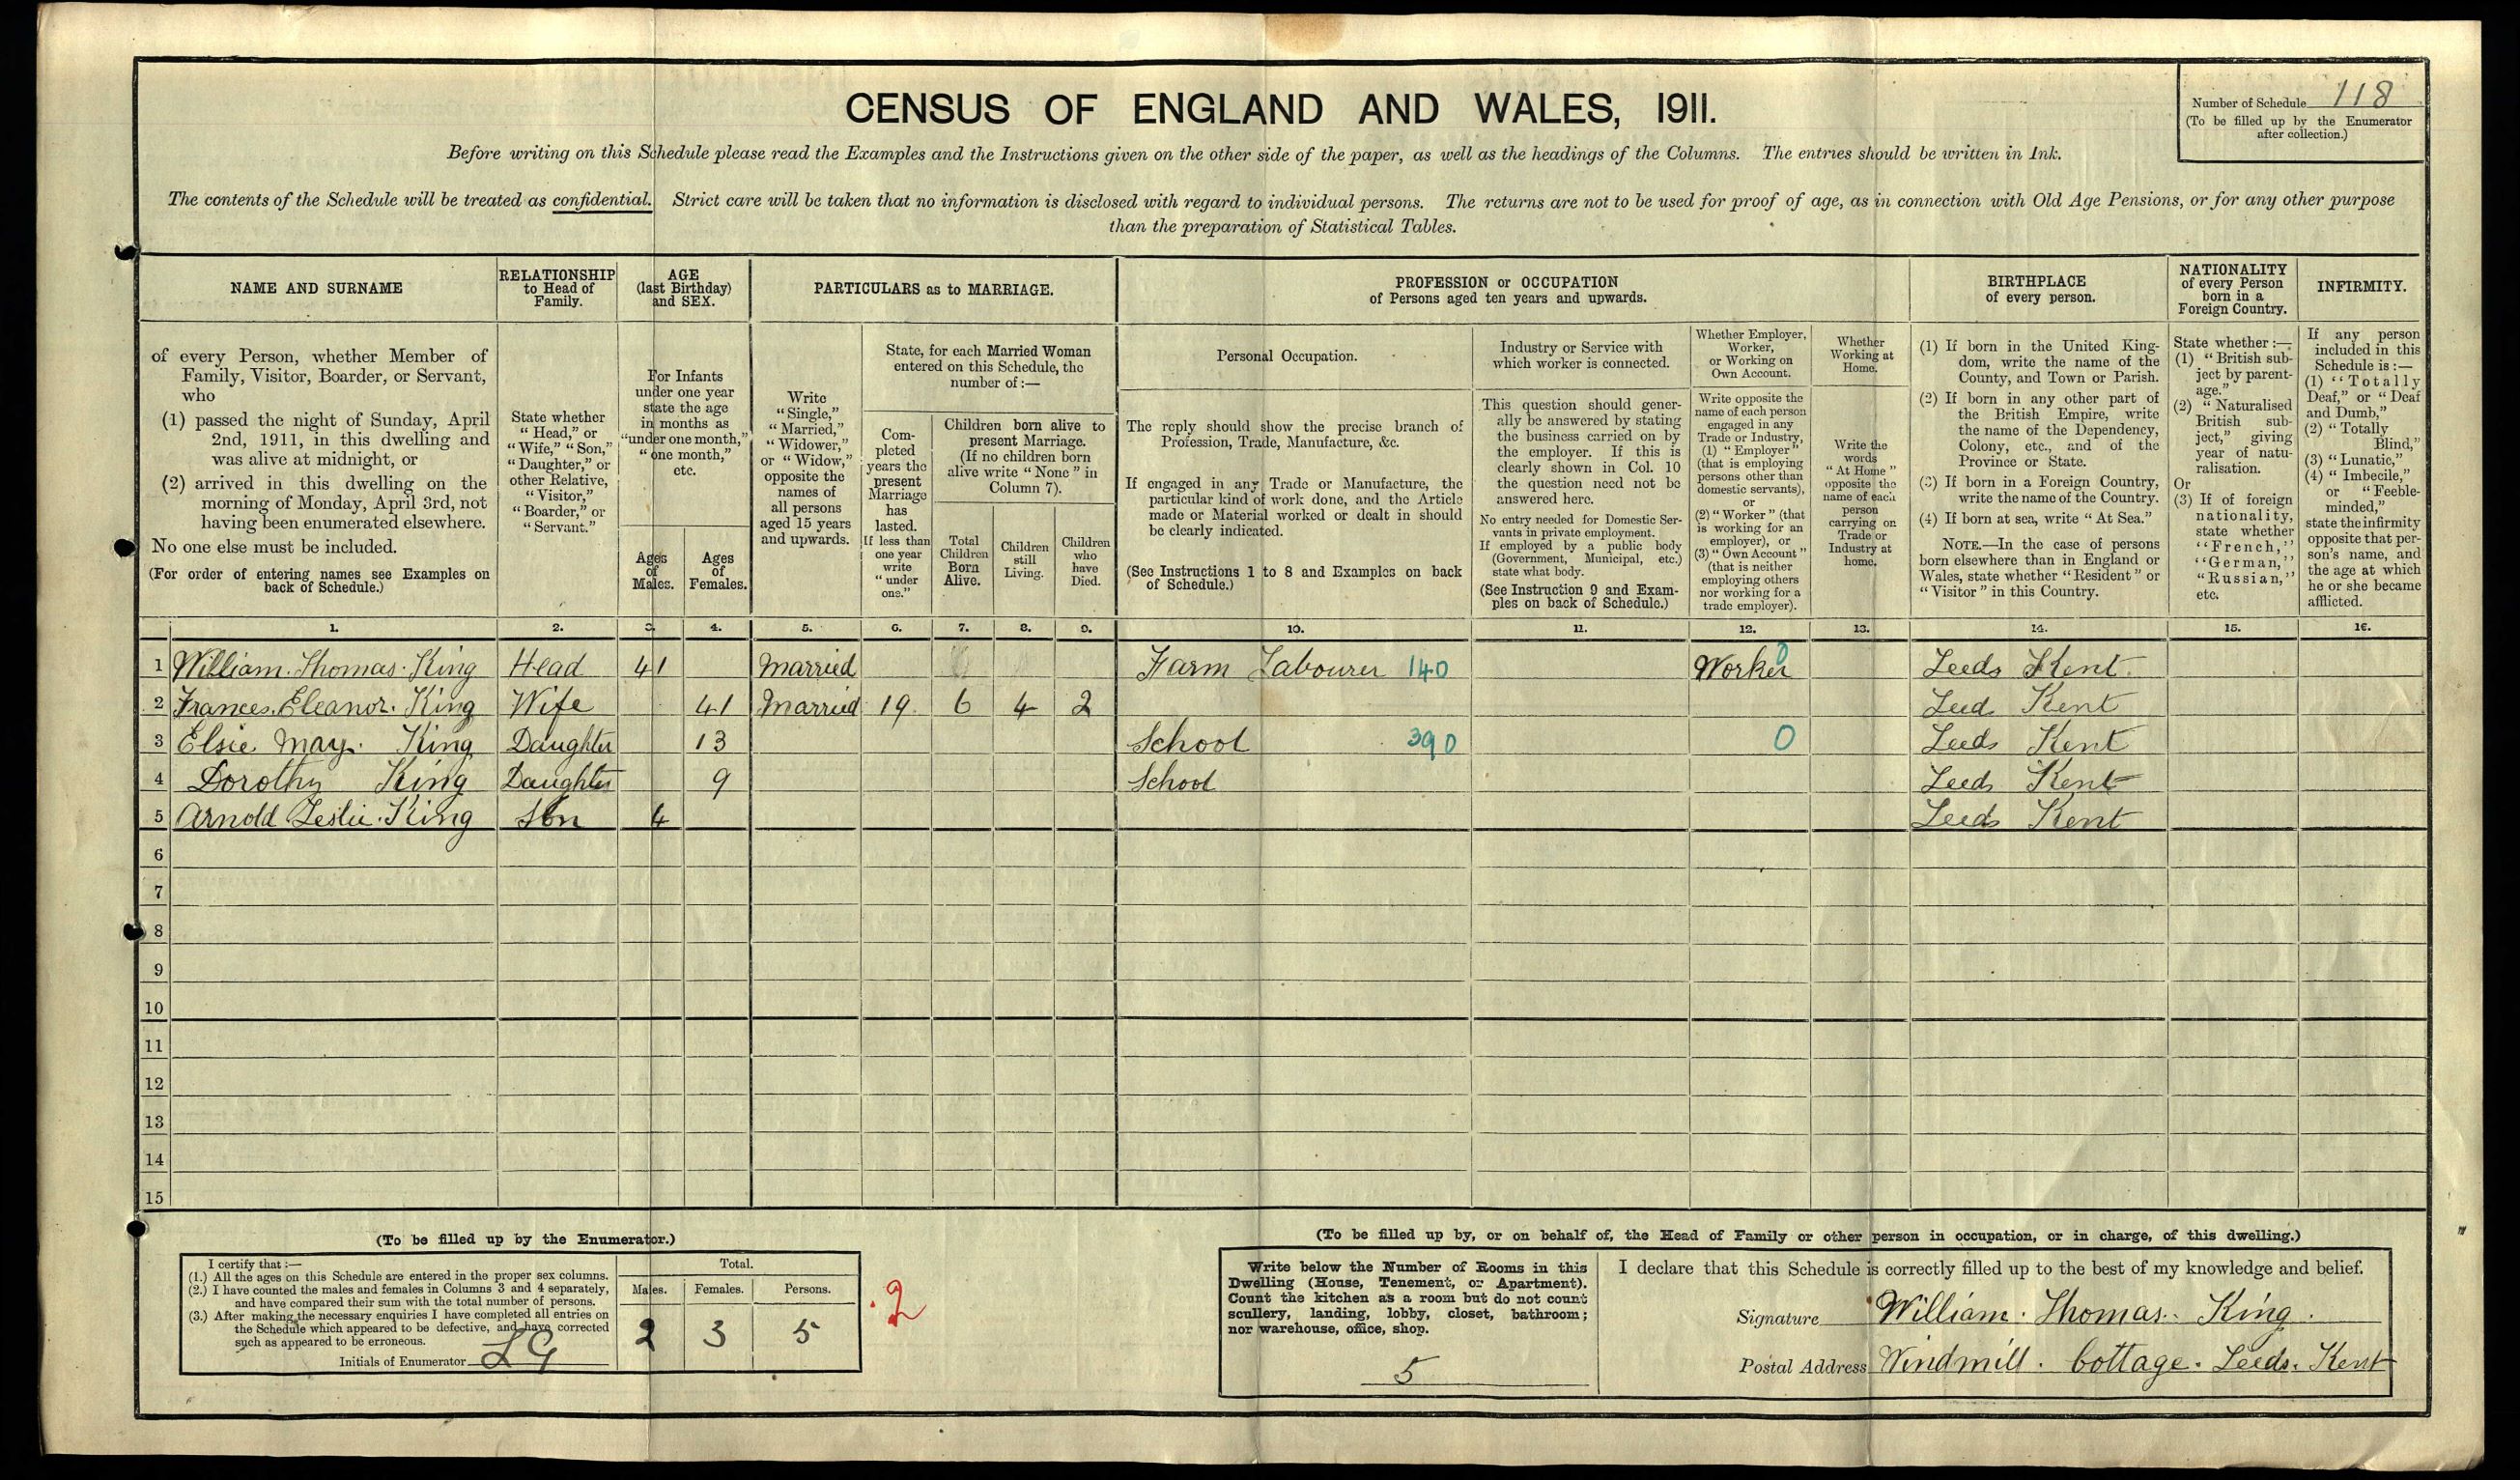 CENSUS OF ENGLAND AND WALES, 1911.
Number of Schedule 118
(To be filled up by the Enumerator
after collection.)
Before writing on this Schedule please read the Examples and the Instructions given on the other side of the paper, as well as the headings of the Columns. The entries should be written in Ink.
The contents of the Schedule will be treated as confidential. Strict care will be taken that no information is disclosed with regard to individual persons. The returns are not to be used for proof of age, as in connection with Old Age Pensions, or for any other purpose
than the preparation of Statistical Tables.
NAME AND SURNAME
of every Person, whether Member of
Family, Visitor, Boarder, or Servant,
who
(1) passed the night of Sunday, April
2nd, 1911, in this dwelling and
was alive at midnight, or
(2) arrived in this dwelling on the
morning of Monday, April 3rd, not
having been enumerated elsewhere.
No one else must be included.
(For order of entering names see Examples on
back of Schedule.)
RELATIONSHIP
to Head of
Family.
State whether
"Head," or
"Wife," "Son,"
"Daughter," or
other Relative,
"Visitor,"
"Boarder," or
"Servant."
AGE
(last Birthday)
and SEX.
For Infants
under one year
state the age
in months as
"under one month,"
"one month,"
etc.
Ages
of
Males.
Ages
of
Females.
PARTICULARS as to MARRIAGE.
Write
"Single,"
"Married,"
"Widower,"
or "Widow,"
opposite the
names of
all persons
aged 15 years
and upwards.
State, for each Married Woman
entered on this Schedule, the
number of :—
Com-
pleted
years the
present
Marriage
has
lasted.
If less than
one year
write
"under
one."
Children born alive to
present Marriage.
(If no children born
alive write "None" in
Column 7).
Total
Children
Born
Alive.
Children
still
Living.
Children
who
have
Died.
PROFESSION or OCCUPATION
of Persons aged ten years and upwards.
Personal Occupation.
The reply should show the precise branch of
Profession, Trade, Manufacture, &c.
If engaged in any Trade or Manufacture, the
particular kind of work done, and the Article
made or Material worked or dealt in should
be clearly indicated.
(See Instructions 1 to 8 and Examples on back
of Schedule.)
Industry or Service with
which worker is connected.
This question should gener-
ally be answered by stating
the business carried on by
the employer. If this is
clearly shown in Col. 10
the question need not be
answered here.
No entry needed for Domestic Ser-
vants in private employment.
If employed by a public body
(Government, Municipal, etc.)
state what body.
(See Instruction 9 and Exam-
ples on back of Schedule.)
Whether Employer,
Worker,
or Working on
Own Account.
Write opposite the
name of each person
engaged in any
Trade or Industry,
(1) "Employer"
(that is employing
persons other than
domestic servants),
or
(2) "Worker" (that
is working for an
employer), or
(3) "Own Account"
(that is neither
employing others
nor working for a
trade employer).
Whether
Working at
Home.
Write the
words
"At Home"
opposite the
name of each
person
carrying on
Trade or
Industry at
home.
BIRTHPLACE
of every person.
(1) If born in the United King-
dom, write the name of the
County, and Town or Parish.
(2) If born in any other part of
the British Empire, write
the name of the Dependency,
Colony, etc., and of the
Province or State.
(3) If born in a Foreign Country,
write the name of the Country.
(4) If born at sea, write "At Sea."
NOTE.—In the case of persons
born elsewhere than in England or
Wales, state whether "Resident" or
"Visitor" in this Country.
NATIONALITY
of every Person
born in a
Foreign Country.
State whether :—
(1) "British sub-
ject by parent-
age."
(2) "Naturalised
British sub-
ject," giving
year of natu-
ralisation.
Or
(3) If of foreign
nationality,
state whether
"French,"
"German,"
"Russian,"
etc.
INFIRMITY.
If any person
included in this
Schedule is :—
(1) "Totally
Deaf," or "Deaf
and Dumb,"
(2) "Totally
Blind,"
(3) "Lunatic,"
(4) "Imbecile,"
or "Feeble-
minded,"
state the infirmity
opposite that per-
son's name, and
the age at which
he or she became
afflicted.
1. 2. 3. 4. 5. 6. 7. 8. 9. 10. 11. 12. 13. 14. 15. 16.
1 William. Thomas. King Head 41 Married Farm Labourer 140 Worker 0 Leeds Kent.
2 Frances. Eleanor. King Wife 41 Married 19 6 4 2 Leeds Kent
3 Elsie May. King Daughter 13 School 390 0 Leeds Kent
4 Dorothy King Daughter 9 School Leeds Kent
5 Arnold Leslie. King Son 4 Leeds Kent
6
7
8
9
10
11
12
13
14
15
(To be filled up by the Enumerator.)
I certify that :—
(1.) All the ages on this Schedule are entered in the proper sex columns.
(2.) I have counted the males and females in Columns 3 and 4 separately,
and have compared their sum with the total number of persons.
(3.) After making the necessary enquiries I have completed all entries on
the Schedule which appeared to be defective, and have corrected
such as appeared to be erroneous.
Initials of Enumerator LG
Total.
Males. Females. Persons.
2 3 5
2
(To be filled up by, or on behalf of, the Head of Family or other person in occupation, or in charge, of this dwelling.)
Write below the Number of Rooms in this
Dwelling (House, Tenement, or Apartment).
Count the kitchen as a room but do not count
scullery, landing, lobby, closet, bathroom;
nor warehouse, office, shop.
5
I declare that this Schedule is correctly filled up to the best of my knowledge and belief.
Signature William. Thomas. King.
Postal Address Windmill. Cottage. Leeds. Kent